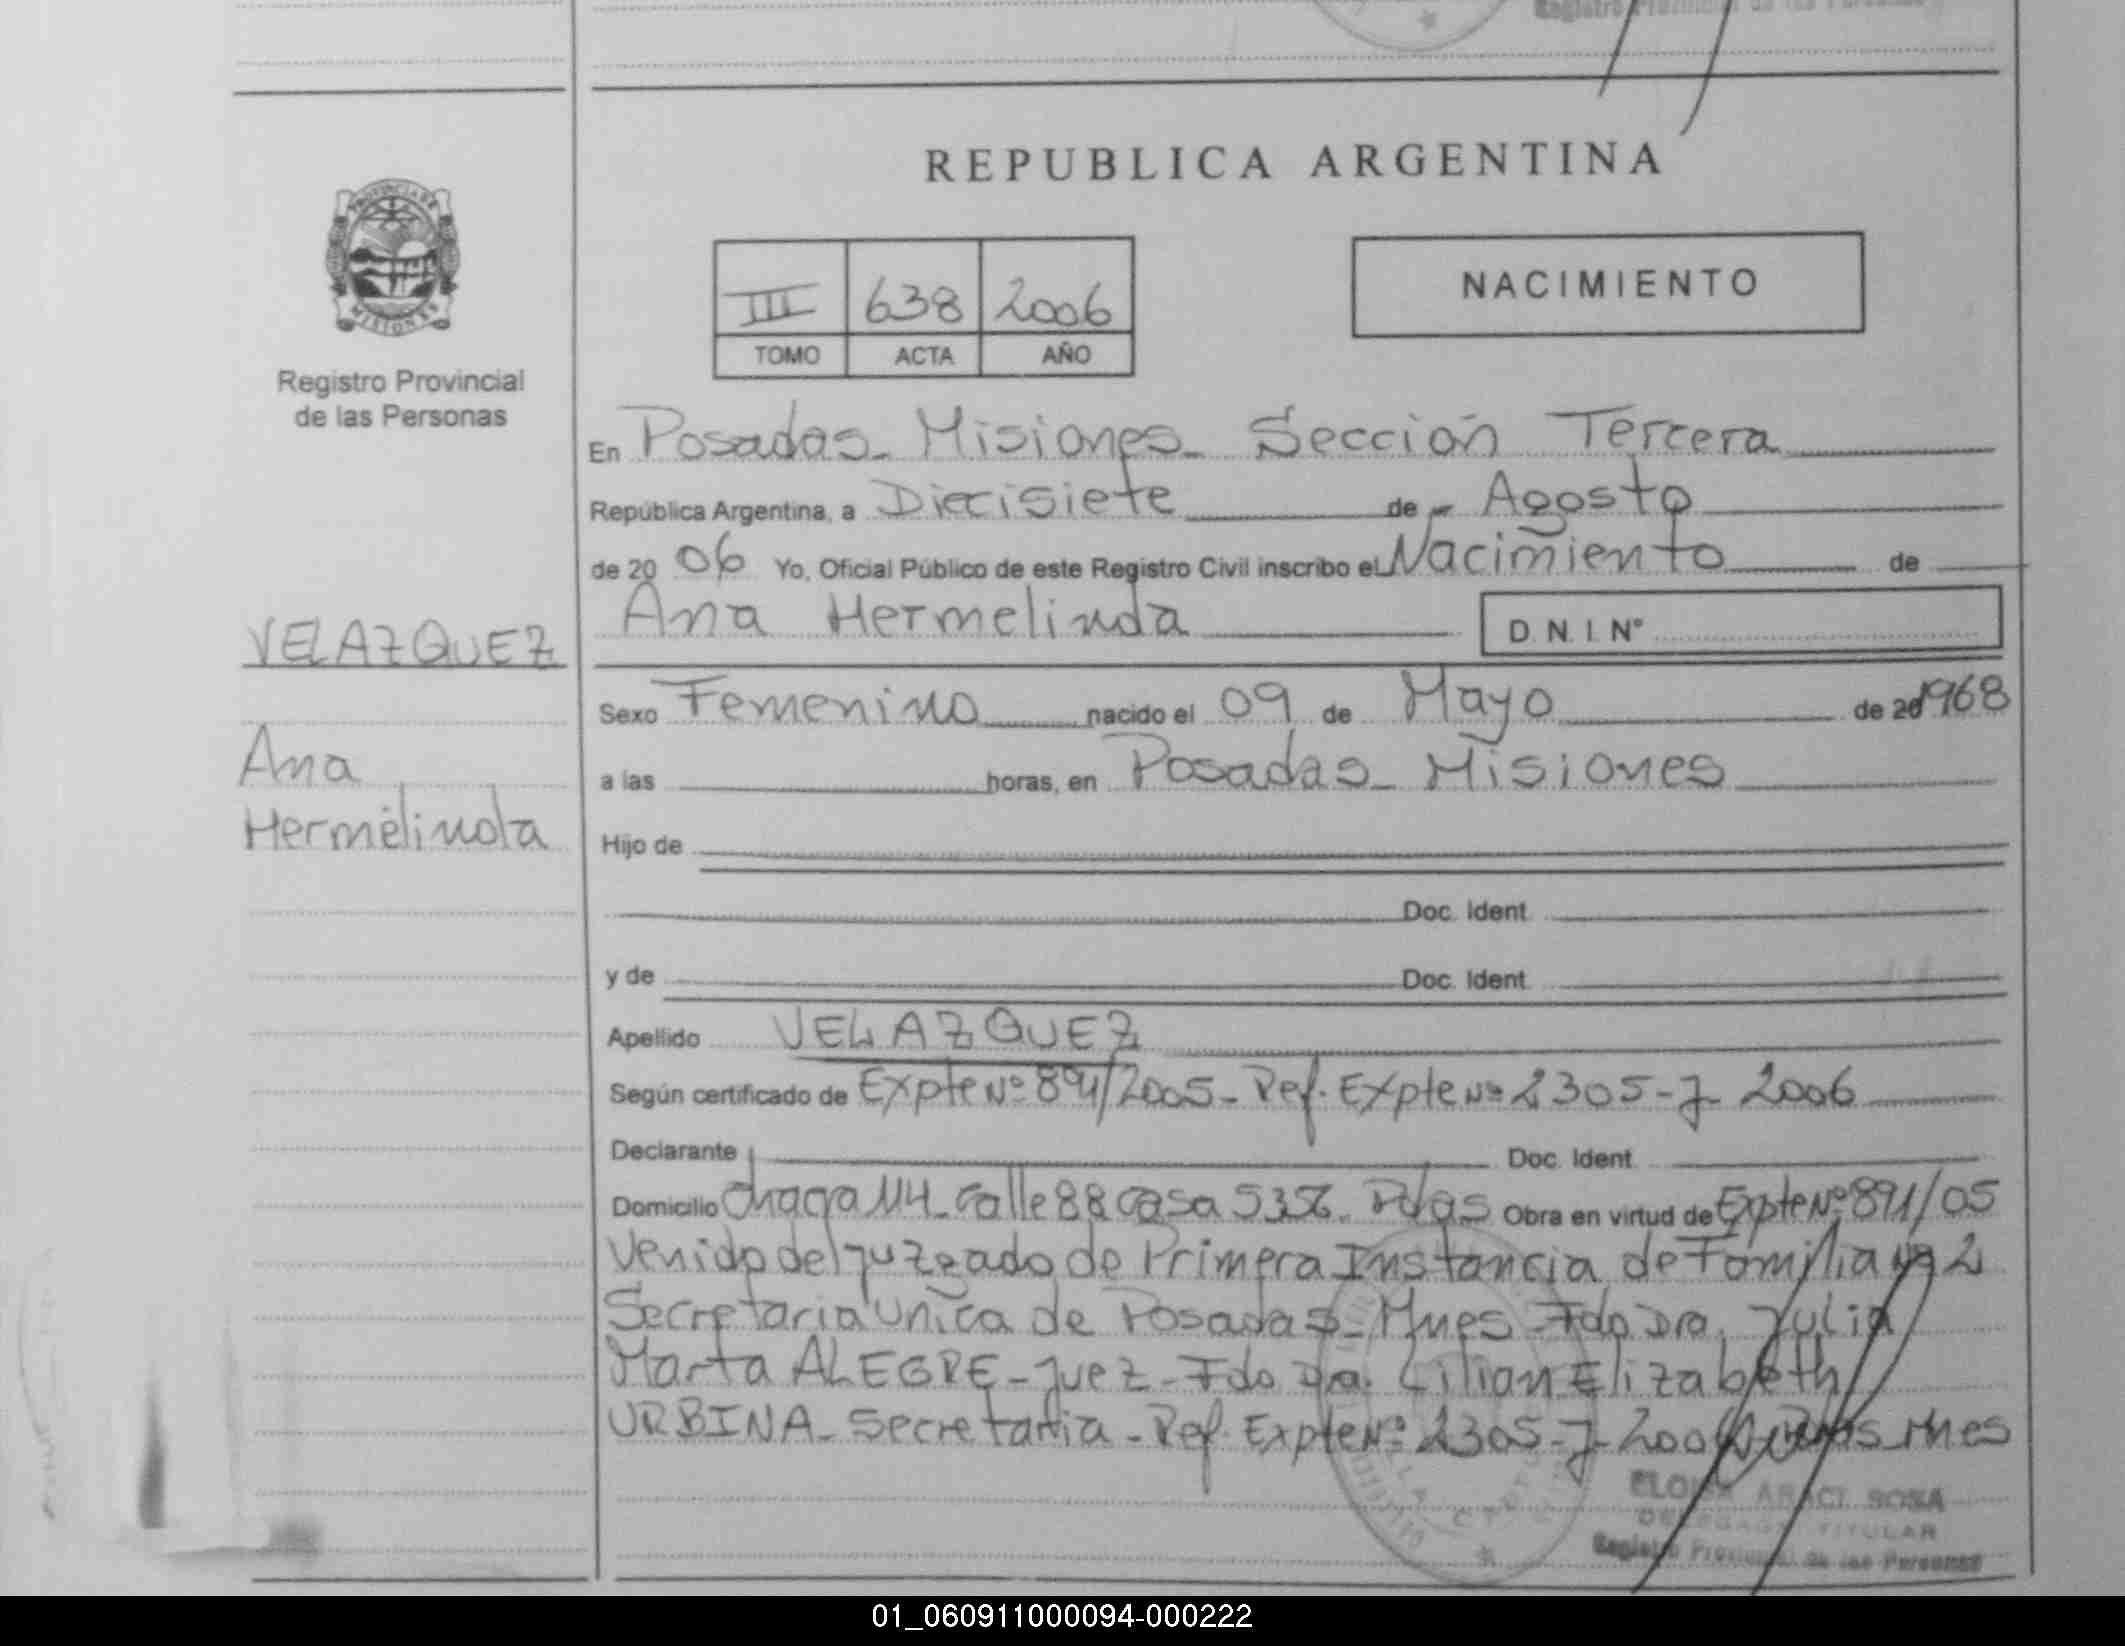 Registro Provincial de las Personas
REPUBLICA ARGENTINA
PROVINCIA DE
MISIONES
Registro Provincial
de las Personas
III 638 2006
TOMO ACTA AÑO
NACIMIENTO
En Posadas - Misiones - Sección Tercera
República Argentina, a Diecisiete de Agosto
de 2006 Yo, Oficial Público de este Registro Civil inscribo el Nacimiento de
Ana Hermelinda
D.N.I. Nº
VELAZQUEZ
Ana
Hermelinda
Sexo Femenino nacido el 09 de Mayo de 20 1968
a las horas, en Posadas - Misiones
Hijo de
Doc. Ident.
y de Doc. Ident.
Apellido VELAZQUEZ
Según certificado de Expte Nº 891/2005 - Ref. Expte Nº 2305-J-2006
Declarante Doc. Ident.
Domicilio Chaca 114 - Calle 88 casa 5356 - Pdas Obra en virtud de Expte Nº 891/05
Venido del Juzgado de Primera Instancia de Familia Nº 2
Secretaria Unica de Posadas - Mnes - Fdo Dra. Julia
Marta ALEGRE - Juez - Fdo Dra. Lilian Elizabeth
URBINA - Secretaria - Ref. Expte Nº 2305-J-2006 Mnes
ARACI SOSA
DELEGADA TITULAR
Registro Provincial de las Personas
01_060911000094-000222